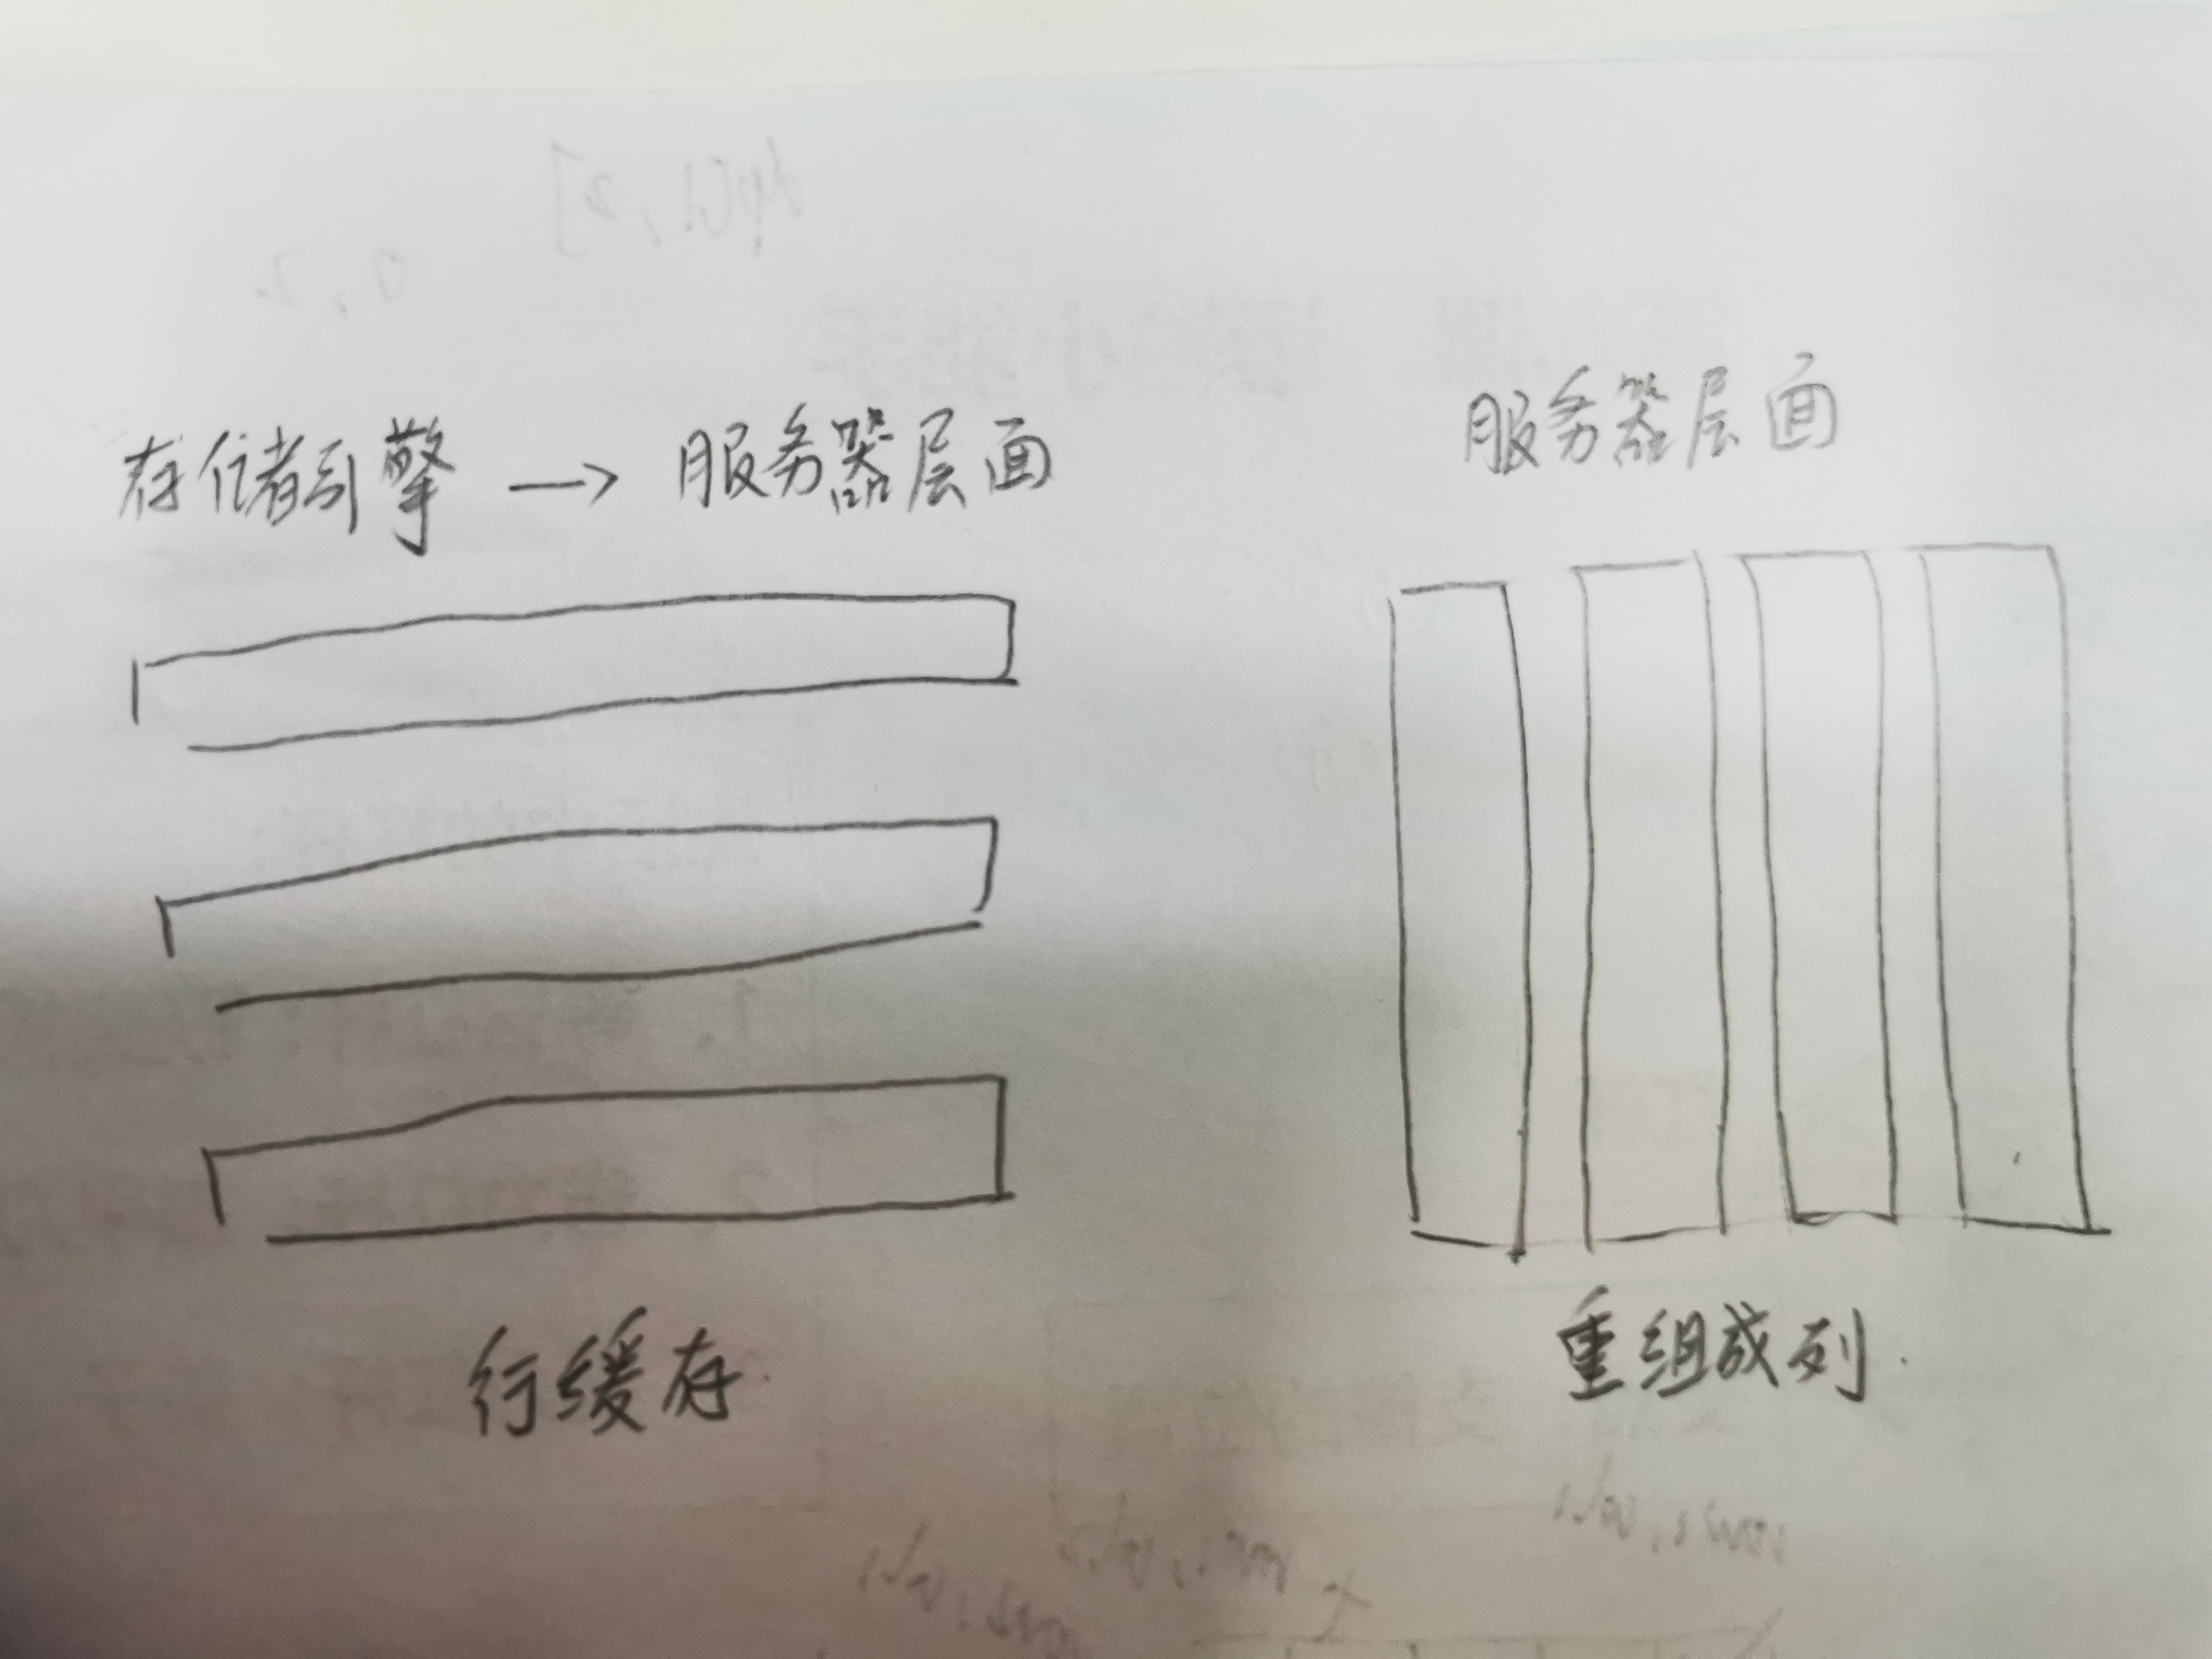 存储引擎 → 服务器层面
服务器层面
行缓存.
重组成列.